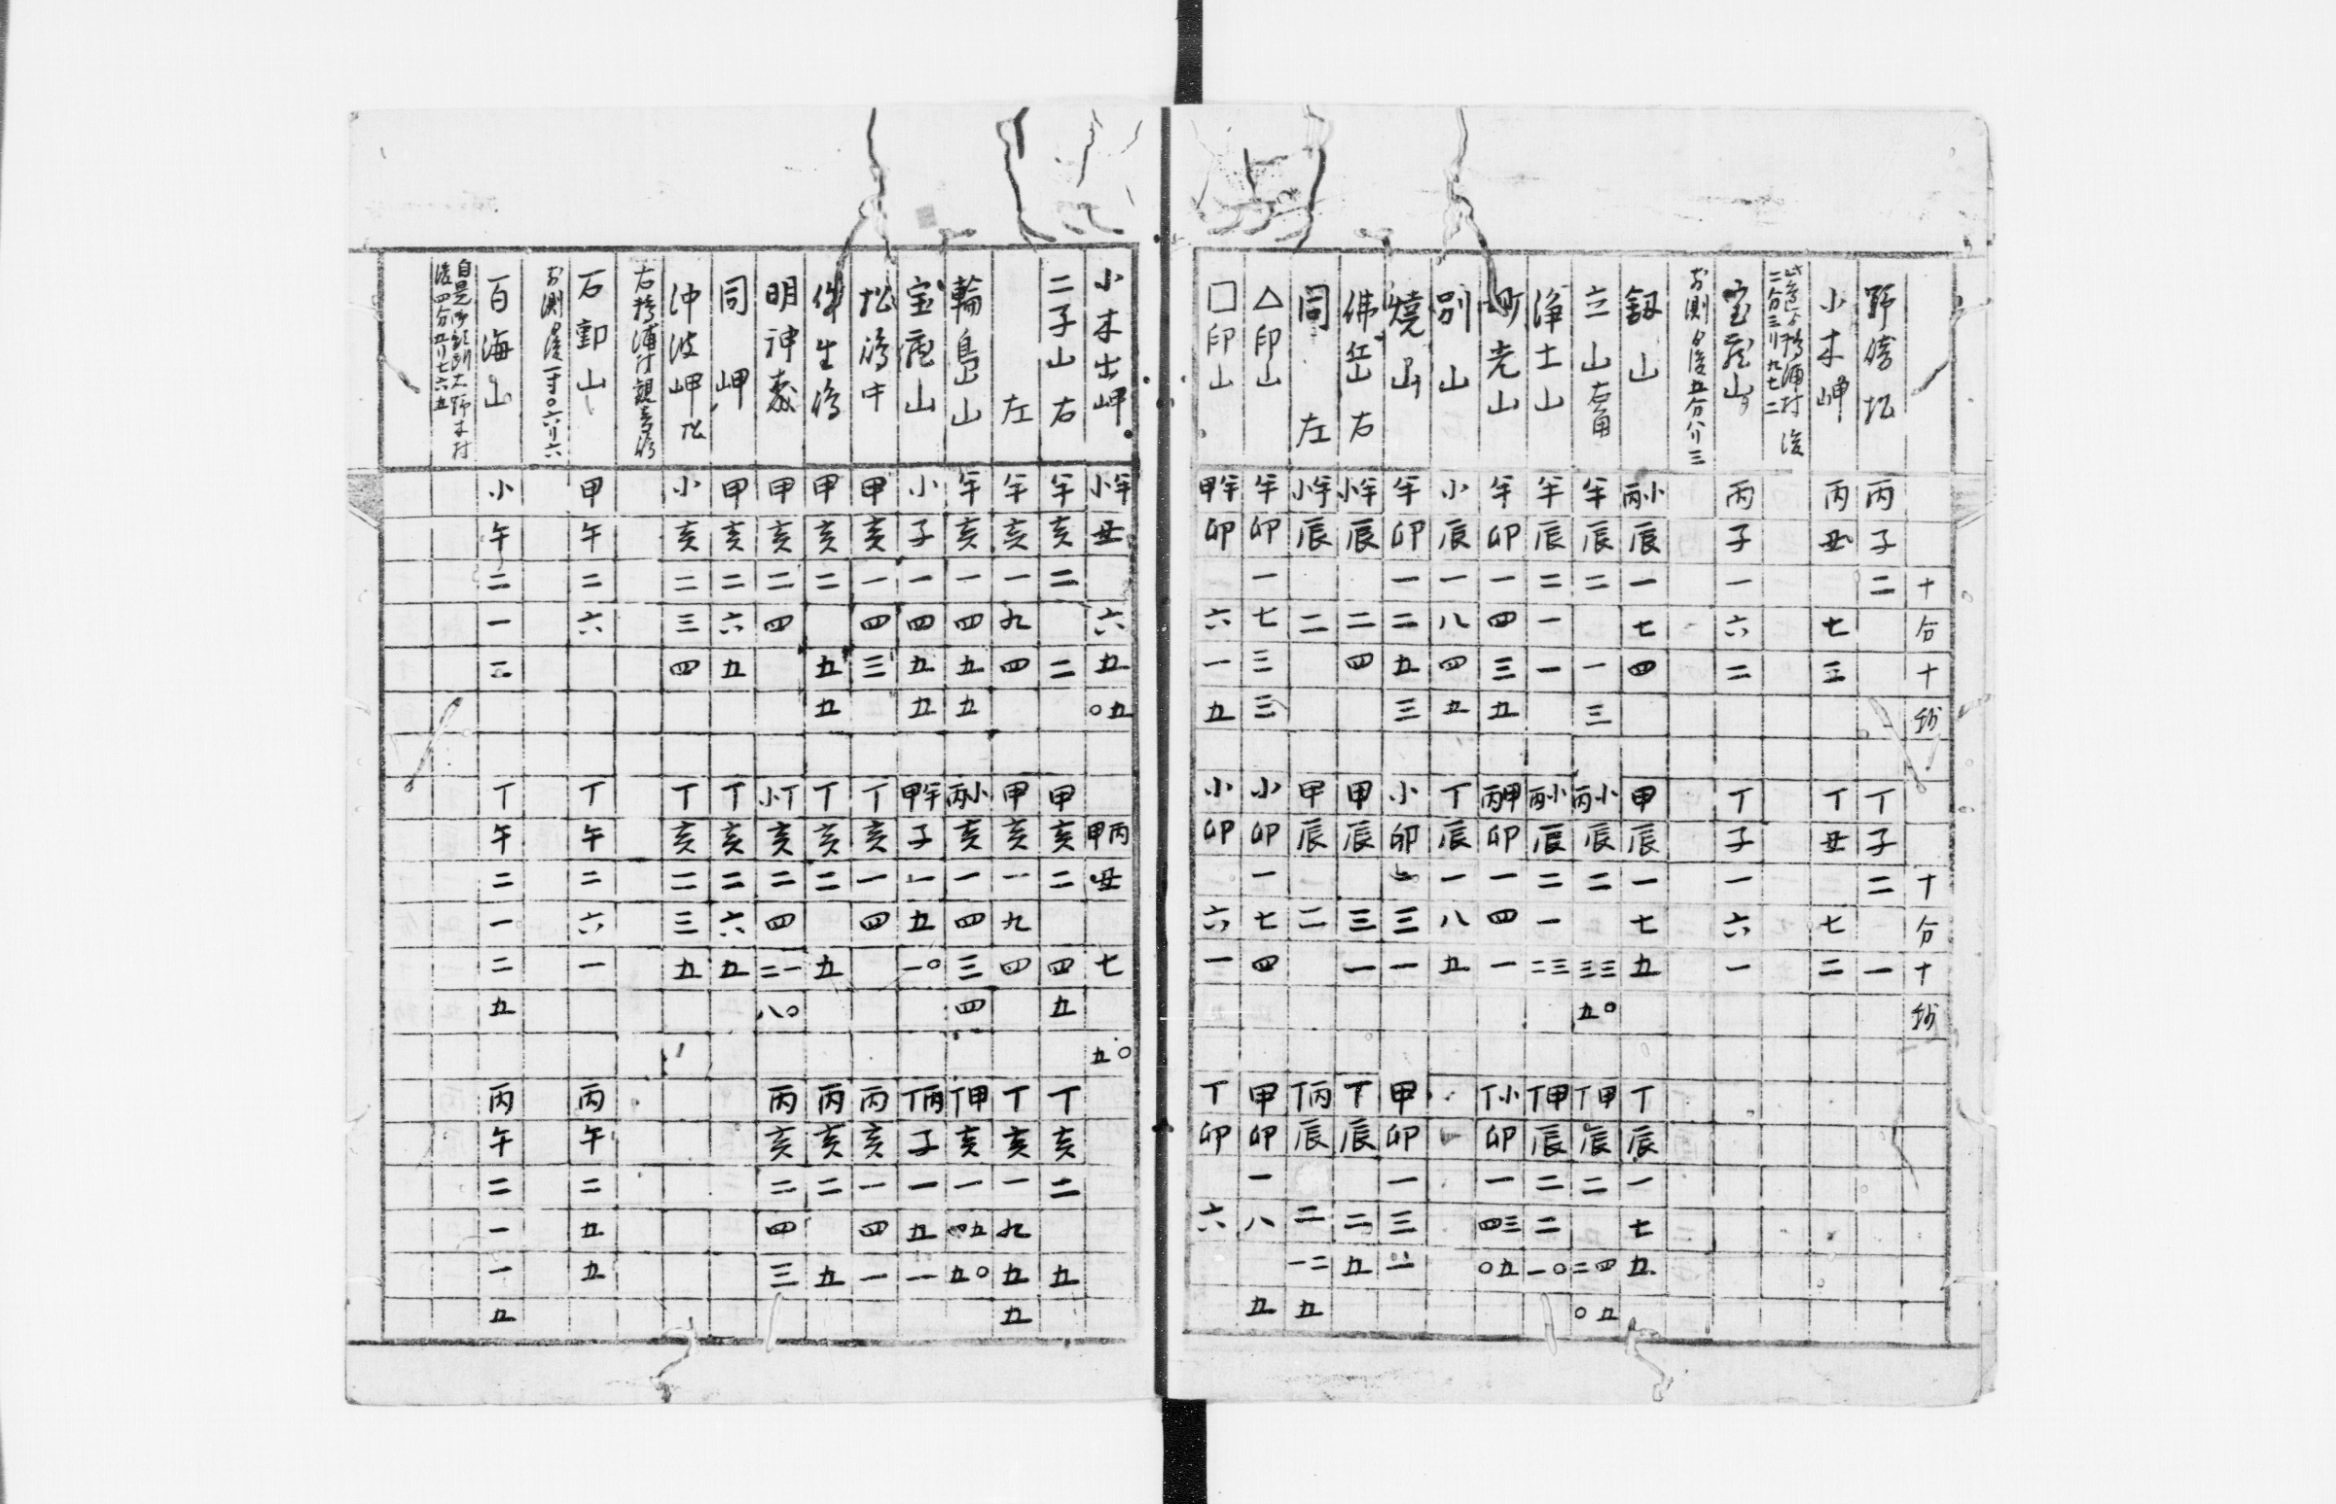 十 分 十 鈔 十 分 十 鈔
野 丙 子 二 丁 子 二 一
小木岬 丙 丑 七 三 丁 丑 七 二
二分三リ九七二
宝 山 丙 子 一 六 二 丁 子 一 六 一
五分八リ三
釼山 丙小 辰 一 七 四 甲 辰 一 七 五 丁 辰 一 七 五
立山右肩 半 辰 二 一 三 丙小 辰 二 三三 五〇 丁甲 辰 二 二四 〇五
浄土山 半 辰 二 一 一 丙小 辰 二 一 二三 丁甲 辰 二 二 一〇
町老山 半 卯 一 四 三 五 丙甲 卯 一 四 一 丁小 卯 一 四三 〇五
別山 小 辰 一 八 四 五 丁 辰 一 八 五
焼山 半 卯 一 二 五 三 小 卯 三 一 甲 卯 一 三
佛岳右 小半 辰 二 四 甲 辰 三 一 丁 辰 二 五
同左 小半 辰 二 甲 辰 二 丁丙 辰 二 一二 五
△印山 半 卯 一 七 三 三 小 卯 一 七 四 甲 卯 一 八 五
□印山 甲半 卯 六 一 五 小 卯 六 一 丁 卯 六
小木出岬 小半 丑 六 五 〇五 甲丙 丑 七 五〇
二子山右 半 亥 二 二 甲 亥 二 四 五 丁 亥 二 五
左 半 亥 一 九 四 甲 亥 一 九 四 丁 亥 一 九 五 五
輪島山 半 亥 一 四 五 五 丙小 亥 一 四 三 四 丁甲 亥 一 四五 五〇
宝 山 小 子 一 四 五 五 甲半 子 一 五 一〇 丁丙 子 一 五 一
松 中 甲 亥 一 四 三 丁 亥 一 四 丙 亥 一 四 一
生 甲 亥 二 五 五 丁 亥 二 五 丙 亥 二 五
明神森 甲 亥 二 四 小丁 亥 二 四 二一 八〇 丙 亥 二 四 三
同岬 甲 亥 二 六 五 丁 亥 二 六 五
沖波岬 小 亥 二 三 四 丁 亥 二 三 五
石動山 甲 午 二 六 丁 午 二 六 一 丙 午 二 五 五
百海山 小 午 二 一 三 丁 午 二 一 二 五 丙 午 二 一 一 五
四分五リ七六五